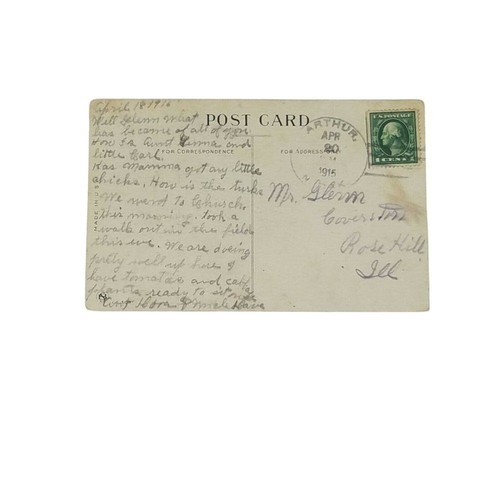 April 18 1916
Well Glenn what
has become of all of you.
How is Aunt Emma and
little Carl.
Has Mamma got any little
chicks. How is the turks
We went to Church
this morning. Took a
walk out in the field
this eve. We are doing
pretty well up here I
have tomatoes and cab
plants ready to set
Dora & Uncle Dave
POST CARD
FOR CORRESPONDENCE
FOR ADDRESS
MADE IN U.S.A.
ARTHUR
APR
20
1916
U.S. POSTAGE
1 CENT 1
Mr. Glenn
Rose Hill
Ill